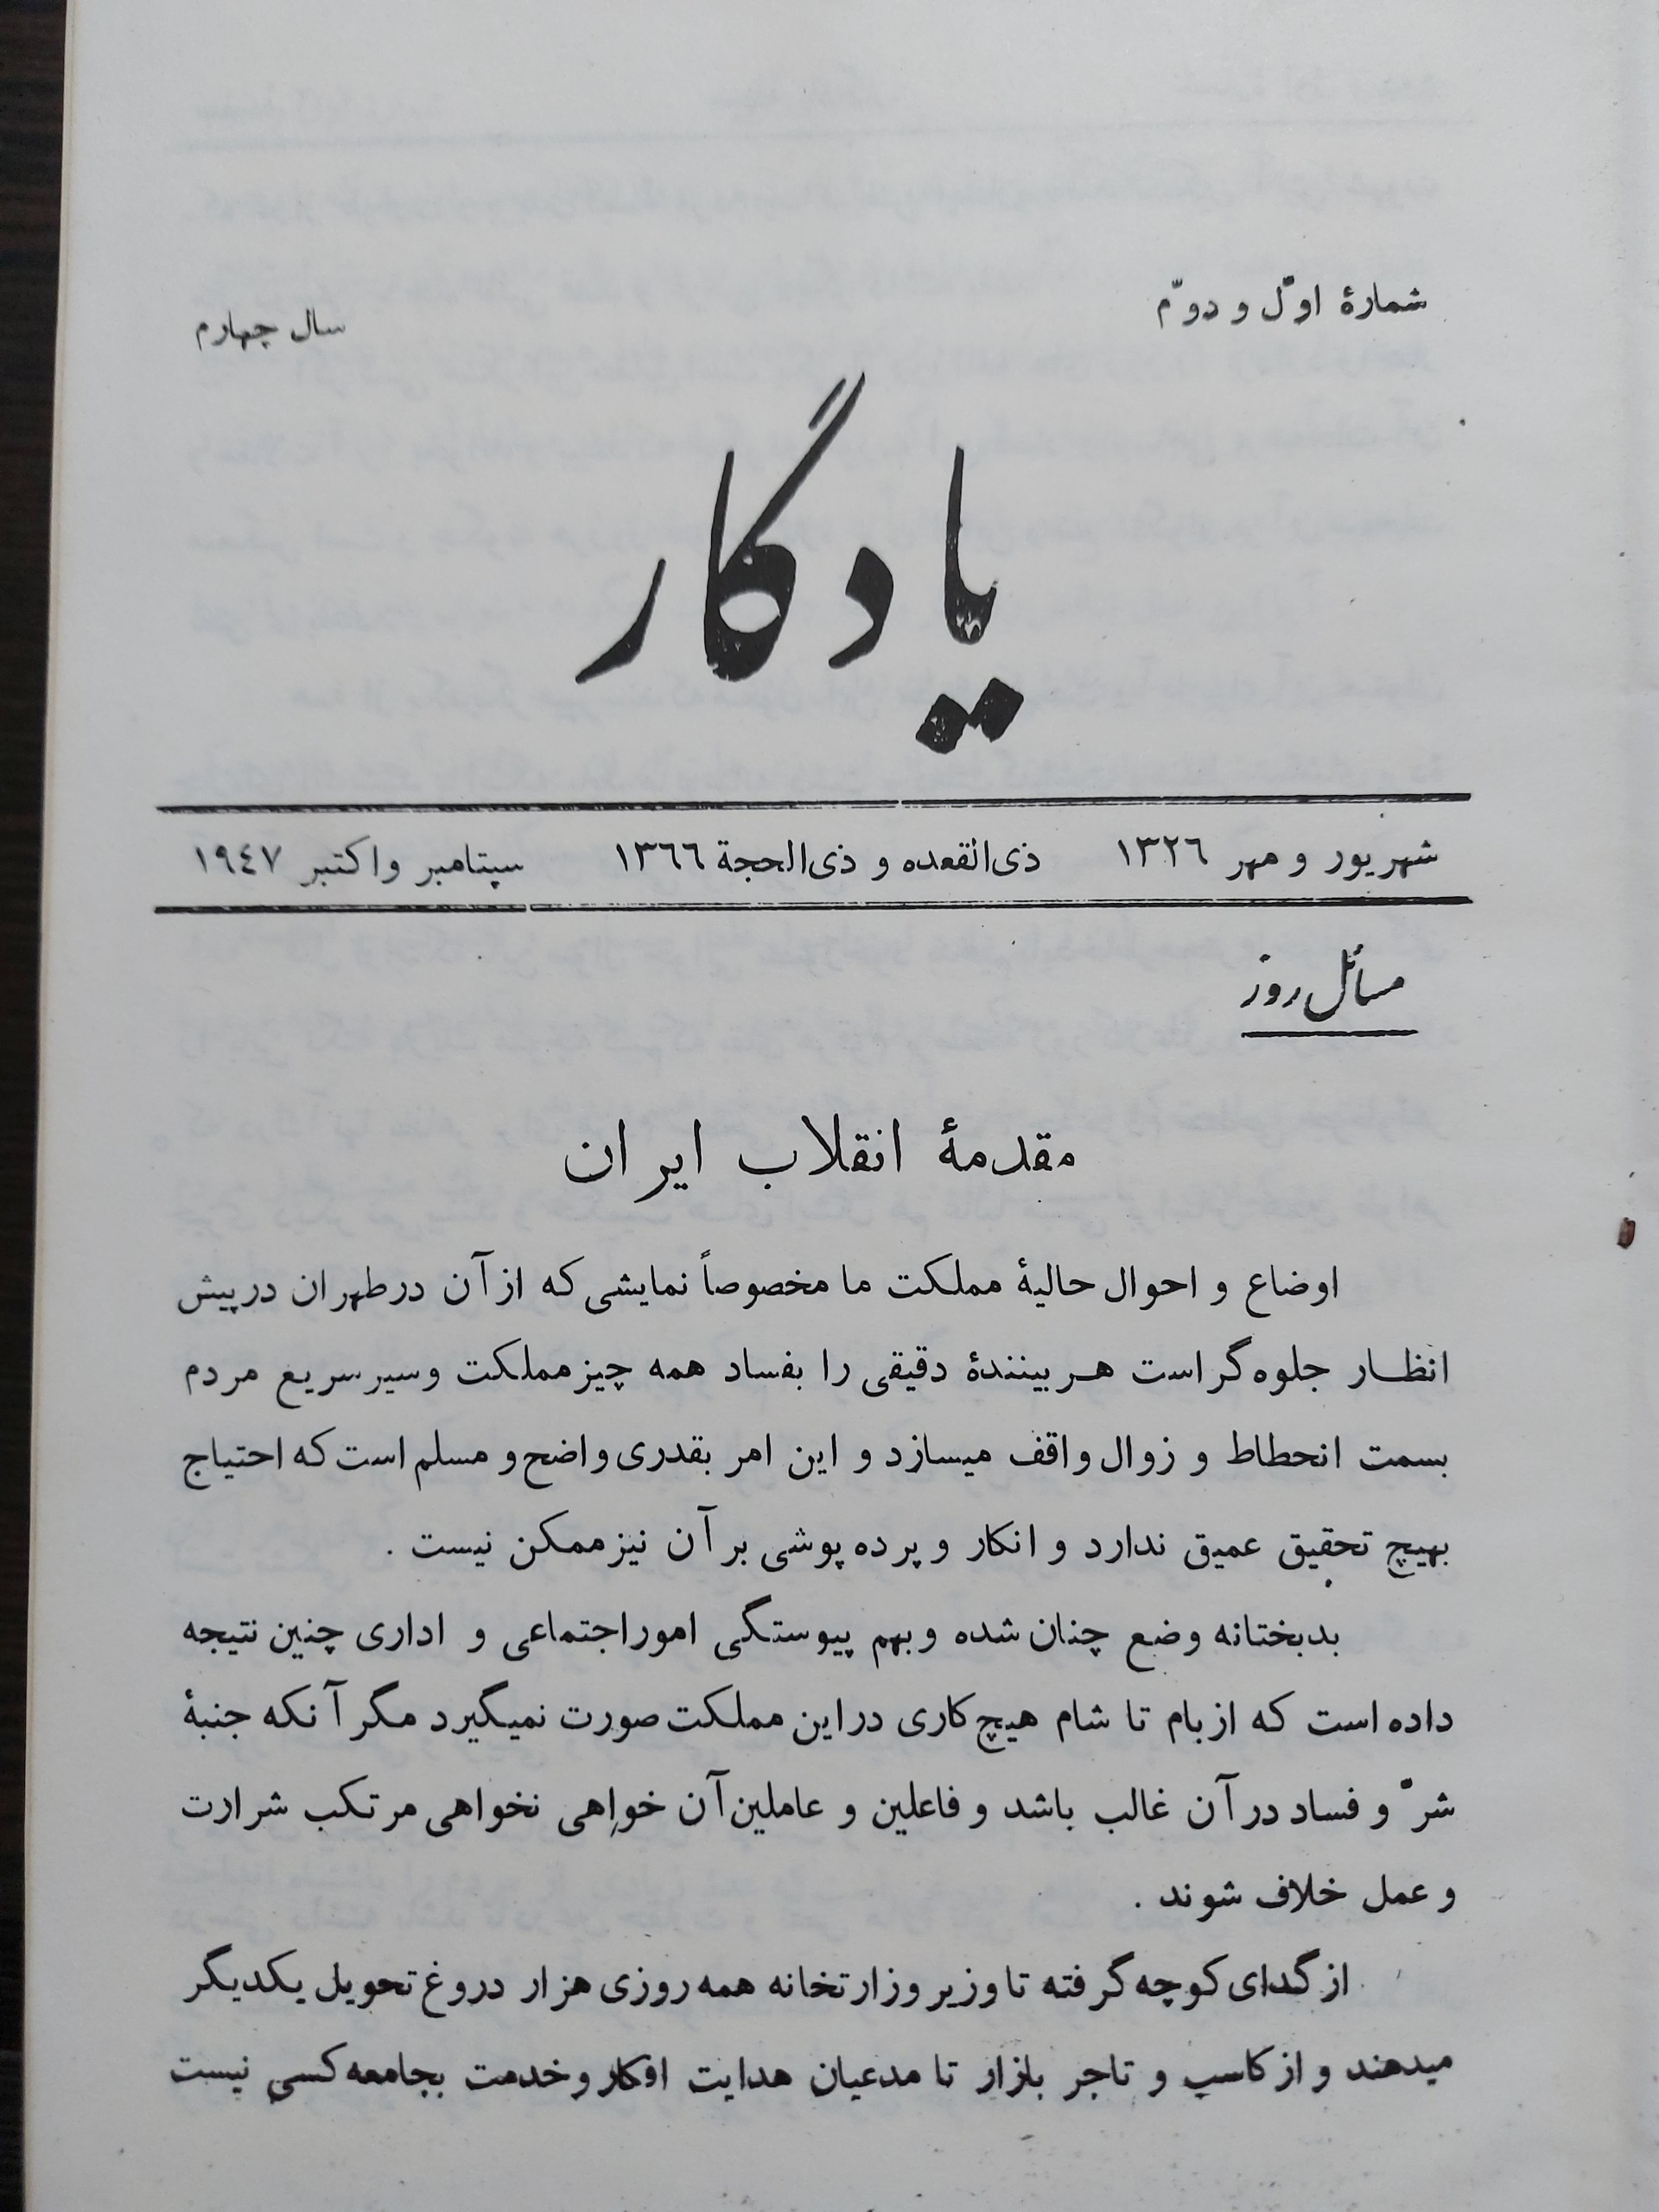 شمارهٔ اوّل و دوّم
سال چهارم
یادگار
شهریور و مهر ۱۳۲٦ ذی‌القعده و ذی‌الحجة ۱۳٦٦ سپتامبر و اکتبر ۱۹٤۷
مسائل روز
مقدمهٔ انقلاب ایران
اوضاع و احوال حالیهٔ مملکت ما مخصوصاً نمایشی که از آن در طهران در پیش
انظار جلوه‌گر است هر بینندهٔ دقیقی را بفساد همه چیز مملکت و سیر سریع مردم
بسمت انحطاط و زوال واقف میسازد و این امر بقدری واضح و مسلم است که احتیاج
بهیچ تحقیق عمیق ندارد و انکار و پرده پوشی بر آن نیز ممکن نیست .
بدبختانه وضع چنان شده و بهم پیوستگی امور اجتماعی و اداری چنین نتیجه
داده است که از بام تا شام هیچ کاری در این مملکت صورت نمیگیرد مگر آنکه جنبهٔ
شرّ و فساد در آن غالب باشد و فاعلین و عاملین آن خواهی نخواهی مرتکب شرارت
و عمل خلاف شوند .
از گدای کوچه گرفته تا وزیر وزارتخانه همه روزی هزار دروغ تحویل یکدیگر
میدهند و از کاسب و تاجر بازار تا مدعیان هدایت افکار و خدمت بجامعه کسی نیست